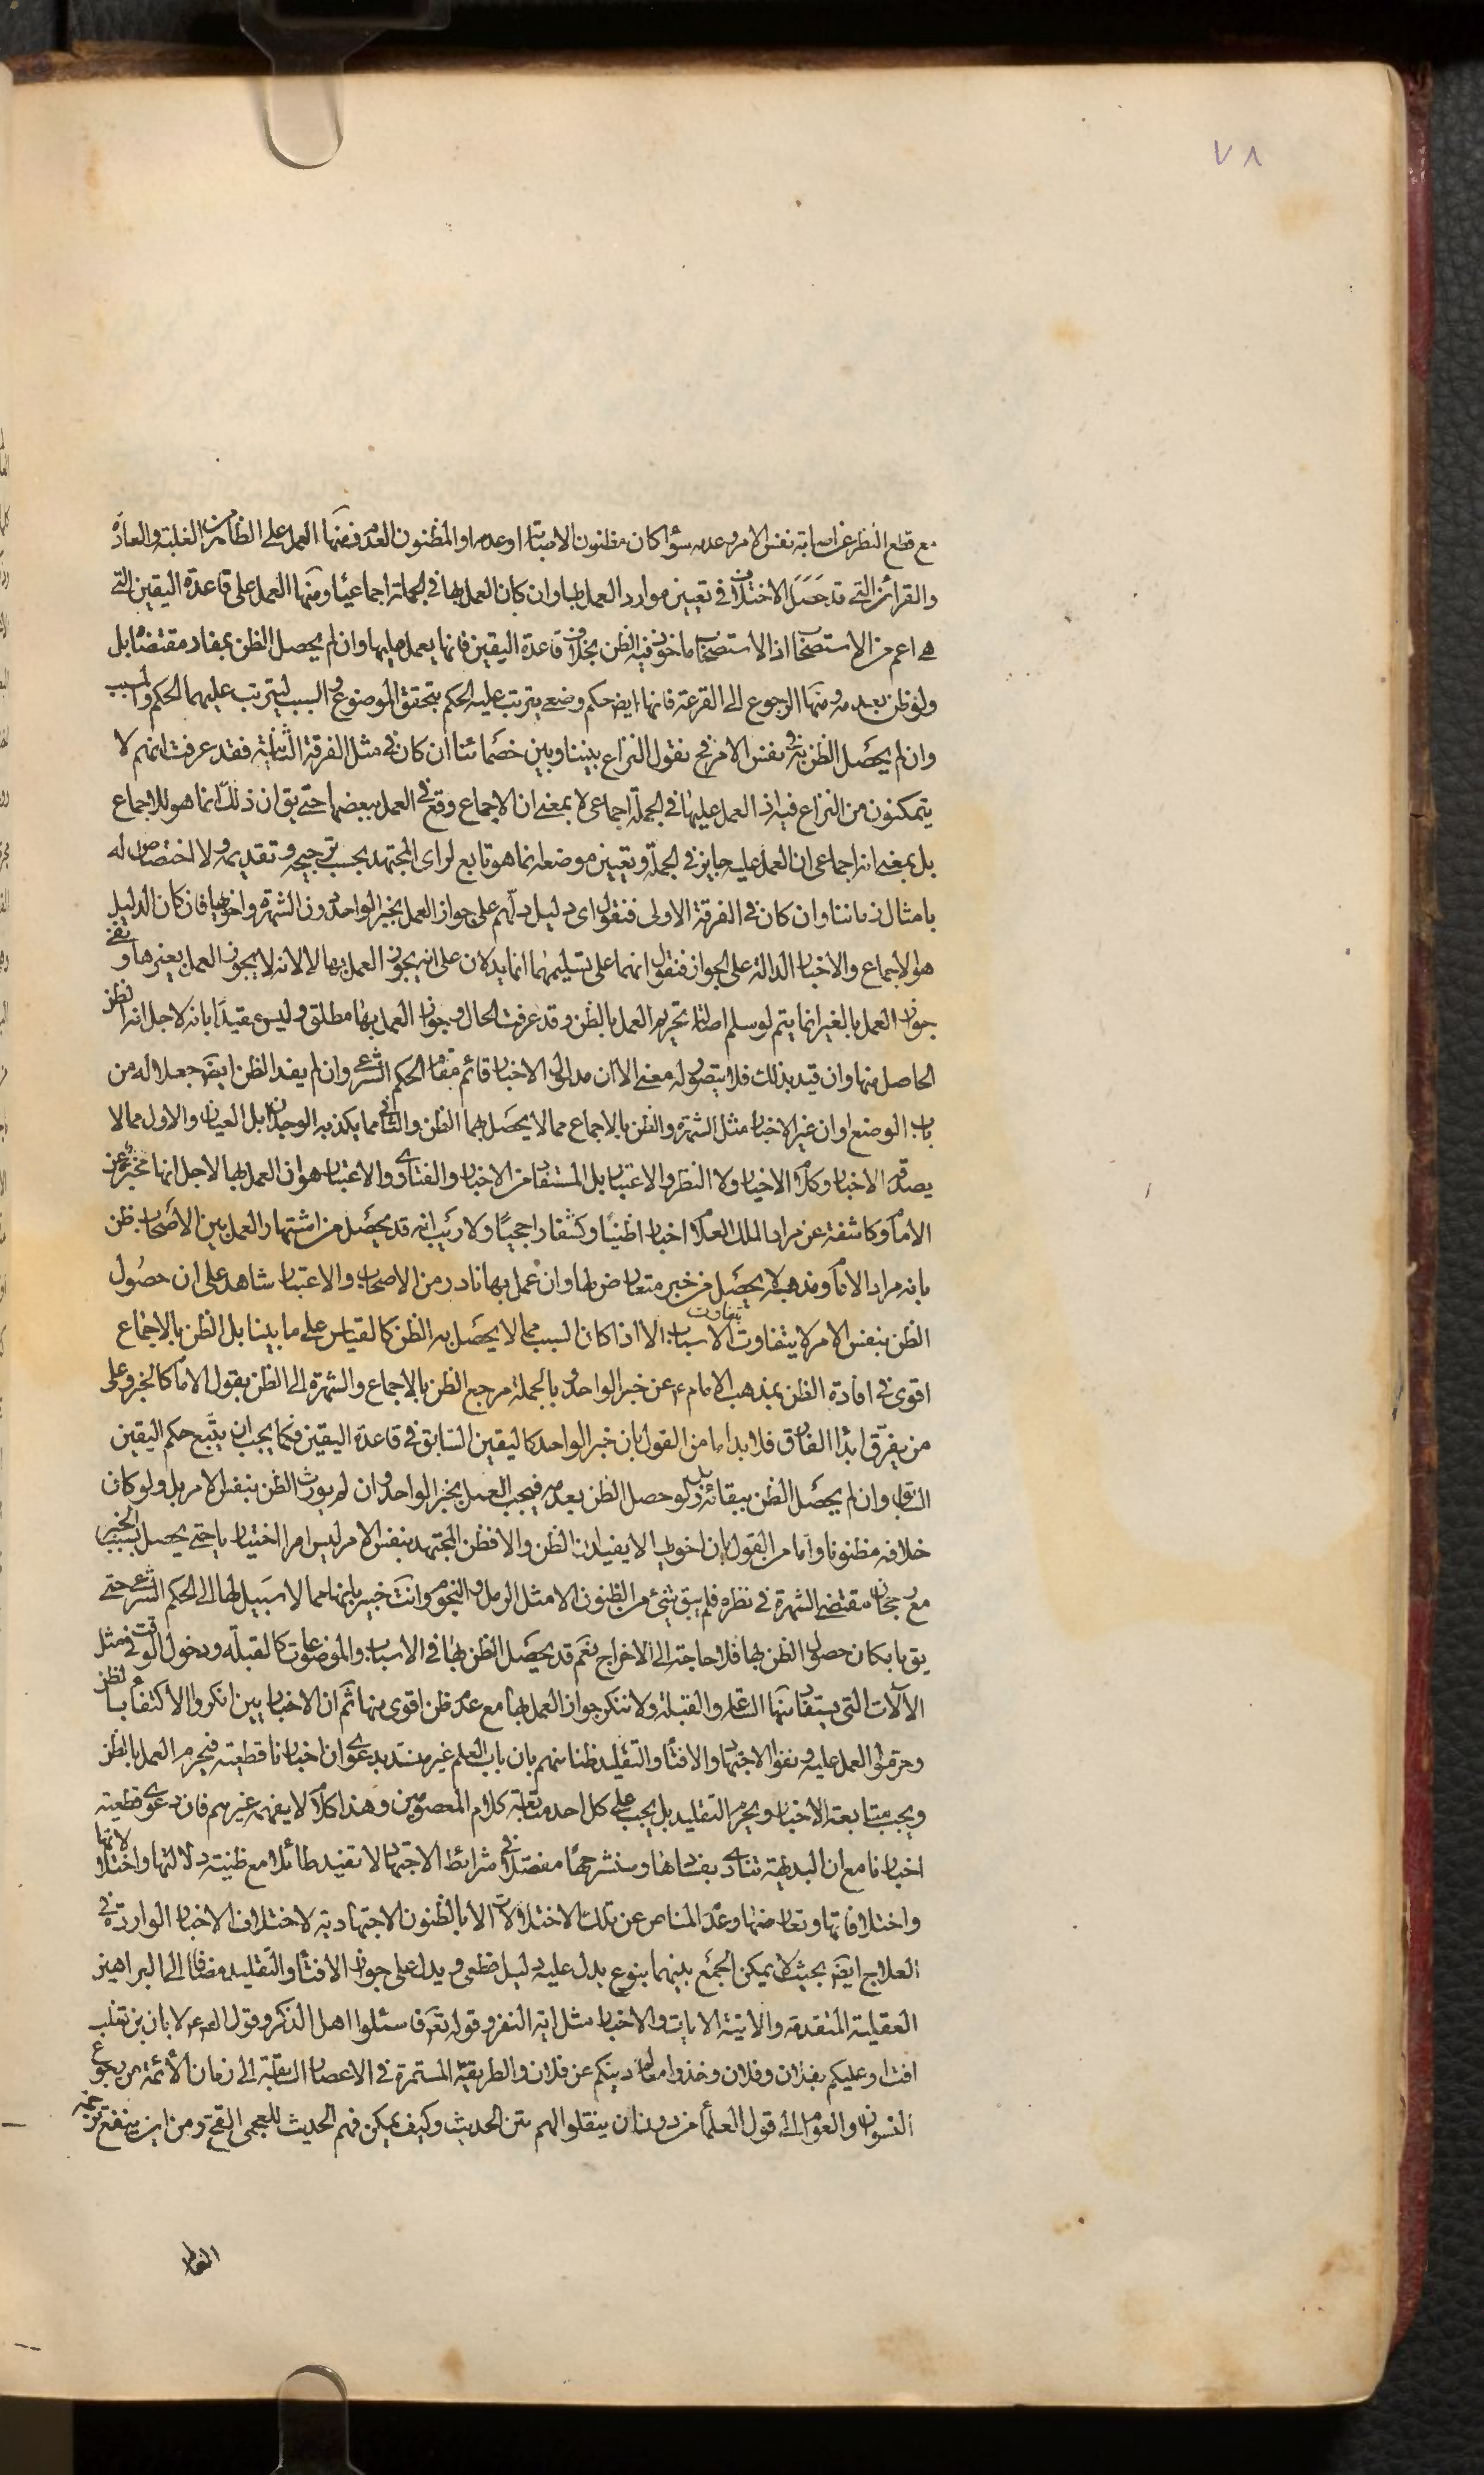 ٧٨
مع قطع النظر عن اصابته نفس الامر وعدمه سواء كان مظنون الاصابة او عدمه او المظنون العدم فمنها العمل على الظاهر من الغلبة والعادة
والقرائن التي قد حصل الاختلاف في تعيين موارد العمل بها وان كان العمل بها في الجملة اجماعيا ومنها العمل على قاعدة اليقين التي
هي اعم من الاستصحاب اذ الاستصحاب ماخوذ فيه الظن بخلاف قاعدة اليقين فانها يعمل عليها وان لم يحصل الظن بمفاد مقتضاها بل
ولو ظن بعدمه ومنها الرجوع الى القرعة فانها ايض حكم وضعي يترتب عليه الحكم بتحقق الموضوع والسبب ليترتب عليهما الحكم والمسبب
وان لم يحصل الظن به في نفس الامر فح نقول النزاع بيننا وبين خصمائنا ان كان في مثل الفرقة الثانية فقد عرفت انهم لا
يتمكنون من النزاع فيه اذ العمل عليها في الجملة اجماعي لا بمعنى ان الاجماع وقع في العمل ببعضها حتى يق ان ذلك انما هو للاجماع
بل بمعنى انه اجماعي ان العمل عليه جايز في الجملة وتعيين موضعه انما هو تابع لراى المجتهد بحسب ترجيحه وتقديمه ولا اختصاص له
بامثال زماننا وان كان في الفرقة الاولى فنقول اى دليل دلهم على جواز العمل بخبر الواحد دون الشهرة واخواتها فان كان الدليل
هو الاجماع والاخبار الدالة على الجواز فنقول انهما على تسليمهما انما يدلان على انه يجوز العمل بها لا لانه لا يجوز العمل بغيرها ونفى
جواز العمل بالغير انما يتم لو سلم اصالة تحريم العمل بالظن وقد عرفت الحال وجواز العمل بها مطلق وليس مقيدا بانه لاجل انه الظن
الحاصل منها وان قيد بذلك فلا يتصور له معنى الا ان مدلول الاخبار قائم مقام الحكم الشرعى وان لم يفد الظن ايض جعلا له من
باب الوضع او ان غير الاخبار مثل الشهرة والظن بالاجماع مما لا يحصل بهما الظن والثانى مما يكذبه الوجدان بل العيان والاول مما لا
يصدقه الاخبار وكذا الاخيار ولا النظر والاعتبار بل المستفاد من الاخبار والفتاوى والاعتبار هو ان العمل بها لاجل انها مخبرة عن
الامام وكاشفة عن مراد الملك العلام اخبارا ظنيا وكشفا راجحيا ولا ريب انه قد يحصل من اشتهار العمل بين الاصحاب ظن
بانه مراد الامام ومذهبه لا يحصل من خبر متعارض لها وان عمل بها نادر من الاصحاب والاعتبار شاهد على ان حصول
الظن بنفس الامر لا يتفاوت بتفاوت الاسباب الا اذا كان السبب مما لا يحصل به الظن كالقياس على ما بينا بل الظن بالاجماع
اقوى في افادة الظن بمذهب الامام ع عن خبر الواحد وبالجملة مرجع الظن بالاجماع والشهرة الى الظن بقول الامام كالخبر وعلى
من يفرق ابداء الفارق فلا بد اما من القول بان خبر الواحد كاليقين السابق في قاعدة اليقين فكما يجب ان يتبع حكم اليقين
السابق وان لم يحصل الظن ببقائه بل ولو حصل الظن بعدمه فيجب العمل بخبر الواحد وان لم يورث الظن بنفس الامر بل ولو كان
خلافه مظنونا واما من القول بان اخواتها لا يفيد لنا الظن والا فظن المجتهد بنفس الامر ليس امرا اختياريا حتى يحصل بسبب الخبر
مع رجحان مقتضى الشهرة في نظره فلم يبق شئ من الظنون الا مثل الرمل والنجوم وانت خبير بانها مما لا سبيل لها الى الحكم الشرعى حتى
يق بامكان حصول الظن بها فلا حاجة الى الاخراج نعم قد يحصل الظن بها في الاسباب والموضوعات كالقبلة ودخول الوقت في مثل
الآلات التي يستفاد منها الساعة والقبلة ولا ننكر جواز العمل بها مع عدم ظن اقوى منها ثم ان الاخباريين انكروا الاكتفاء بالظن
وحرموا العمل عليه ونفوا الاجتهاد والافتاء والتقليد ظنا منهم بان باب العلم غير منسد بدعوى ان اخبارنا قطعية فيحرم العمل بالظن
ويجب متابعة الاخبار ويحرم التقليد بل يجب على كل احد متابعة كلام المعصومين وهذا كلام لا يفهمه غيرهم فان دعوى قطعية
اخبارنا مع ان البديهة تنادى بفسادها وسنشرحها مفصلا في شرائط الاجتهاد لا تفيد طائلا مع ظنية دلالتها واختلالاتها
واختلافاتها وتعارضها وعدم المناص عن تلك الاختلالات الا بالظنون الاجتهادية لاختلاف الاخبار الواردة في
العلاج ايض بحيث لا يمكن الجمع بينهما بنوع يدل عليه دليل قطعى ويدل على جواز الافتاء والتقليد مضافا الى البراهين
العقلية المتقدمة والاتية الايات والاخبار مثل اية النفر وقوله تع فاسئلوا اهل الذكر وقوله ع لابان بن تغلب
افت او عليكم بفلان وفلان وخذوا معالم دينكم عن فلان والطريقة المستمرة في الاعصار السابقة الى زمان الائمة من رجوع
النسوان والعوام الى قول العلماء من دون ان ينقلوا لهم متن الحديث وكيف يمكن فهم الحديث للعجمى القح ومن اين ينفتح ترجمة